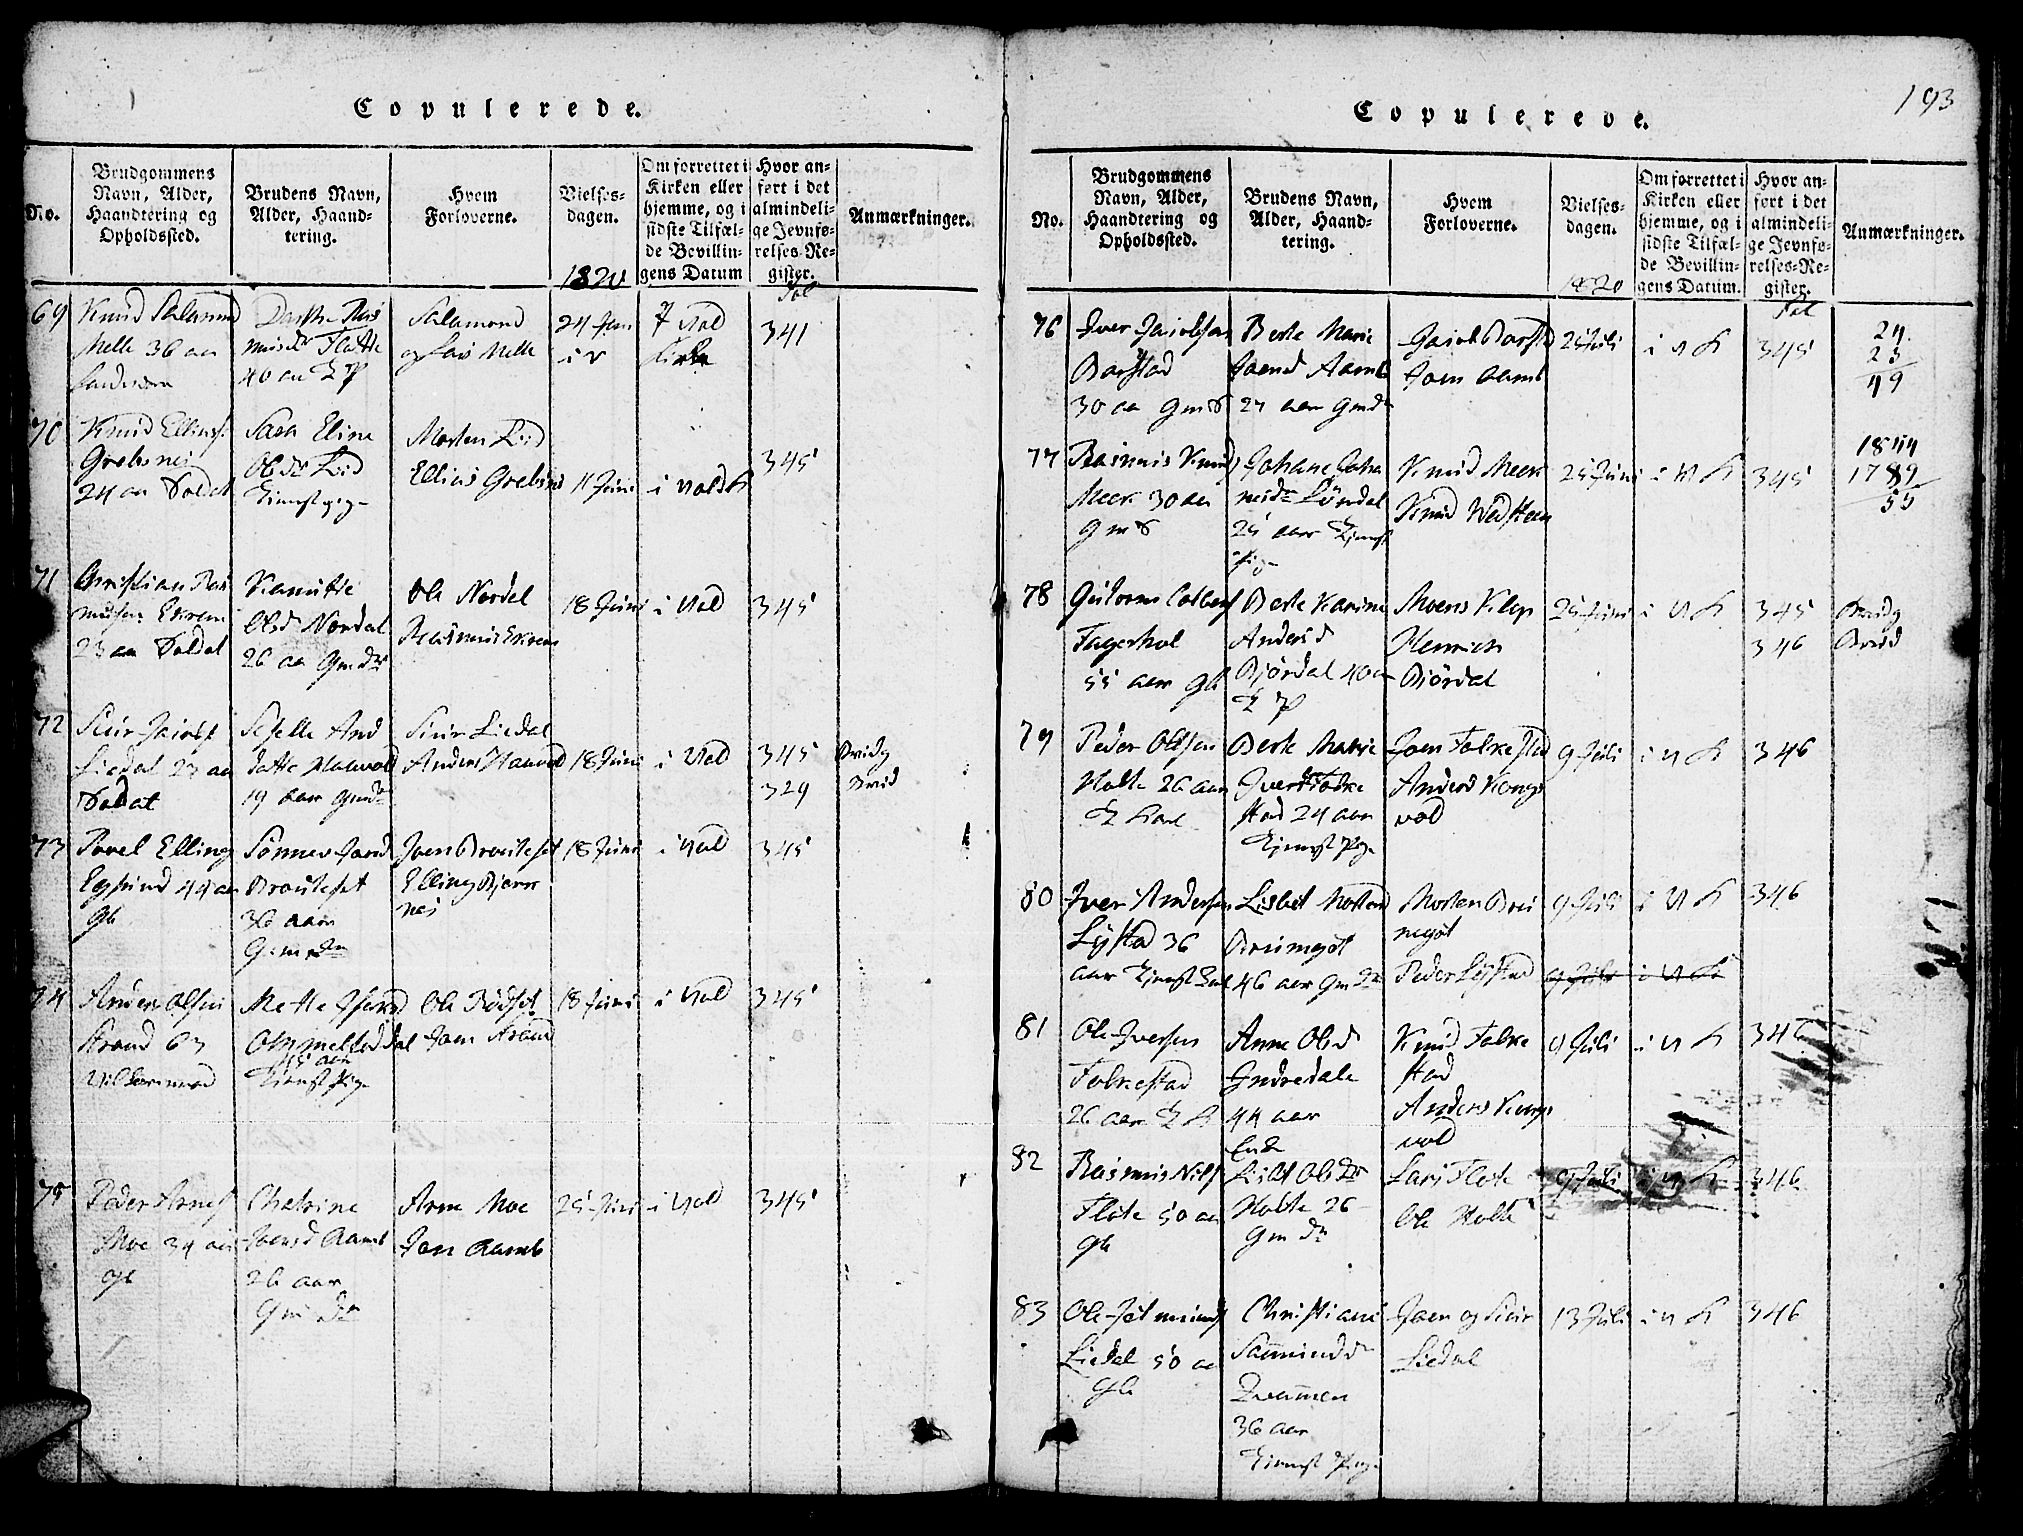 Copulerede.
No.
Brudgommens
Navn, Alder,
Haandtering og
Opholdssted.
Brudens Navn,
Alder, Haand-
tering.
Hvem
Forloverne.
Vielses-
dagen.
1820
Om forrettet i
Kirken eller
hjemme, og i
sidste Tilfæl-
de Bevillin-
gens Datum
Hvor an-
ført i det
almindeli-
ge Jevnfø-
relses-Re-
gister.
Fol
Anmærkninger.
69
Knud
Melle 36 aa
40 aa
Salamond
og Lars Melle
24
Kirke
341
70
Knud Ellins
Grebsnei
24 aa Soldat
Sara Eline
Olsdr Lid
Morten Lid
Ellias Grebsnei
11 Juni
i Vold K
345
71
Christian Ras
musen Ekrem
23 aa Soldat
Olsd Nordal
26 aa Gmdr
Ole Nordal
Rasmus Ekrem
18 Juni
i Vold
345
72
Siur Jacobs
Liedal 23 aa
Soldat
Seselle And
datte Haavold
19 aar Gmdr
Siur Liedal
Anders Haavold
18 Juni
i Vold
345
329
Brudg
Brud
73
Povel Elling
Egsund 44 aa
Gb
Sønnev Jonsd
Brauteset
36 aar
Gmdr
Joen Brauteset
Elling Bjørn
nes
18 Juni
i Vold
345
74
Anders Olsen
Strand 63
Mette
Ommelsteddal
45 aar
Tienst Pige
Ole Bødset
Joen Strand
18 Juni
i Vold
345
75
Peder Arnes
Moe 34 aar
Gb
Chatrine
Joensd Aamb
26 aar
Gmdr
Arne Moe
Jon Aamb
25 Juni
i Vold
345
193
Copulerede.
No.
Brudgommens
Navn, Alder,
Haandtering og
Opholdssted.
Brudens Navn,
Alder, Haand-
tering.
Hvem
Forloverne.
Vielses-
dagen.
1820
Om forrettet i
Kirken eller
hjemme, og i
sidste Tilfæl-
de Bevillin-
gens Datum.
Hvor an-
ført i det
almindeli-
ge Jevnfø-
relses-Re-
gister.
Fol
Anmærkninger.
76
Iver Jacobsen
Barstad
30 aa Gms
Berte Marie
Joensd Aamb
27 aar Gmdr
Jacob Barstad
Joen Aamb
25 Juli
i V K
345
24
25
49
77
Rasmus Knuds
Meer 30 aa
Gms
Johane Joha
nesdr Løndal
25 aar Tjenst
Pige
Knud Meer
Knud Wedsteen
25 Juni
i V K
345
1844
1789
55
78
Guttorm Colbens
Fagerhol
55 aar Gb
Berte Karine
Andersd
Bjørdal 40 aa
Moens Klep
Henrich
Biørdal
25 Juni
i V K
345
346
Brudg
Brud
79
Peder Olsen
Holte 26 aar
Berte Marie
Iversdtr Folke
stad 24 aar
Tjenst Pige
Joen Folkestad
Anders Kongs
vold
9 Juli
i V K
346
80
Iver Andersen
Løstad 36
aar Tjenst Karl
Lisbet Mortensd
Breinngot
46 aar Gmdr
Morten Brei
negot
Peder Løstad
9 Juli
i V K
346
9 Juli
i V K
81
Ole Iversen
Folkestad
26 aar
Anne Olsd
Indredale
44 aar
Enke
Knud Folke
stad
Anders Kongs
vold
9 Juli
i V K
346
82
Rasmus Nils
Fløte 50 aa
Gb
Lisbt Olsdr
Holte 26
Gmdr
Lars Fløte
Ole Holte
9 Juli
i V K
346
83
Ole Jetmunds
Liedal 50 aa
Gb
Christiane
Samundsdr
Qvammen
36 aar
Tienst Pige
Joen og Siur
Liedal
13 Juli
i V K
346